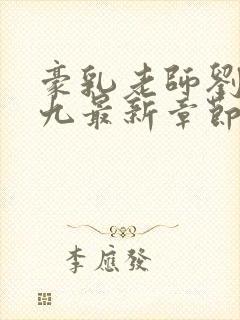 豪乳老師劉
九最新章節
李應發